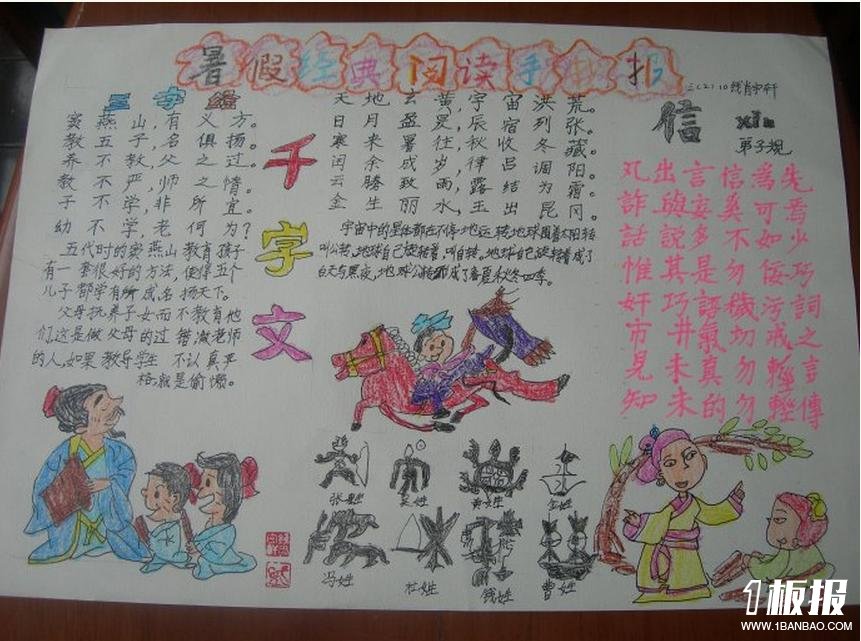 暑假经典阅读手抄报
三(2)10
三字经
窦燕山,有义方。
教五子,名俱扬。
养不教,父之过。
教不严,师之惰。
子不学,非所宜。
幼不学,老何为?
五代时的窦燕山教育孩子
有一套很好的方法,使得五个
儿子都学有所成名扬天下。
父母抚养子女而不教育他
们,这是做父母的过错减老师
的人,如果教导学生不认真严
格,就是偷懒。
千字文
天地玄黄,宇宙洪荒。
日月盈昃,辰宿列张。
寒来暑往,秋收冬藏。
闰余成岁,律吕调阳。
云腾致雨,露结为霜。
金生丽水,玉出昆冈。
宇宙中的星体都在不停地运转,地球围着太阳转
叫公转,地球自己旋转着,叫自转,地球自己旋转着成了
白天与黑夜,地球公转形成了春夏秋冬四季。
信
弟子规
凡出言信為先
詐與妄奚可焉
話說多不如少
惟其是勿佞巧
奸巧語穢污詞
市井氣切戒之
見未真勿輕言
知未的勿輕傳
张姓
吴姓
黄姓
冯姓
杜姓
钱姓
曹姓
1板报
WWW.1BANBAO.COM